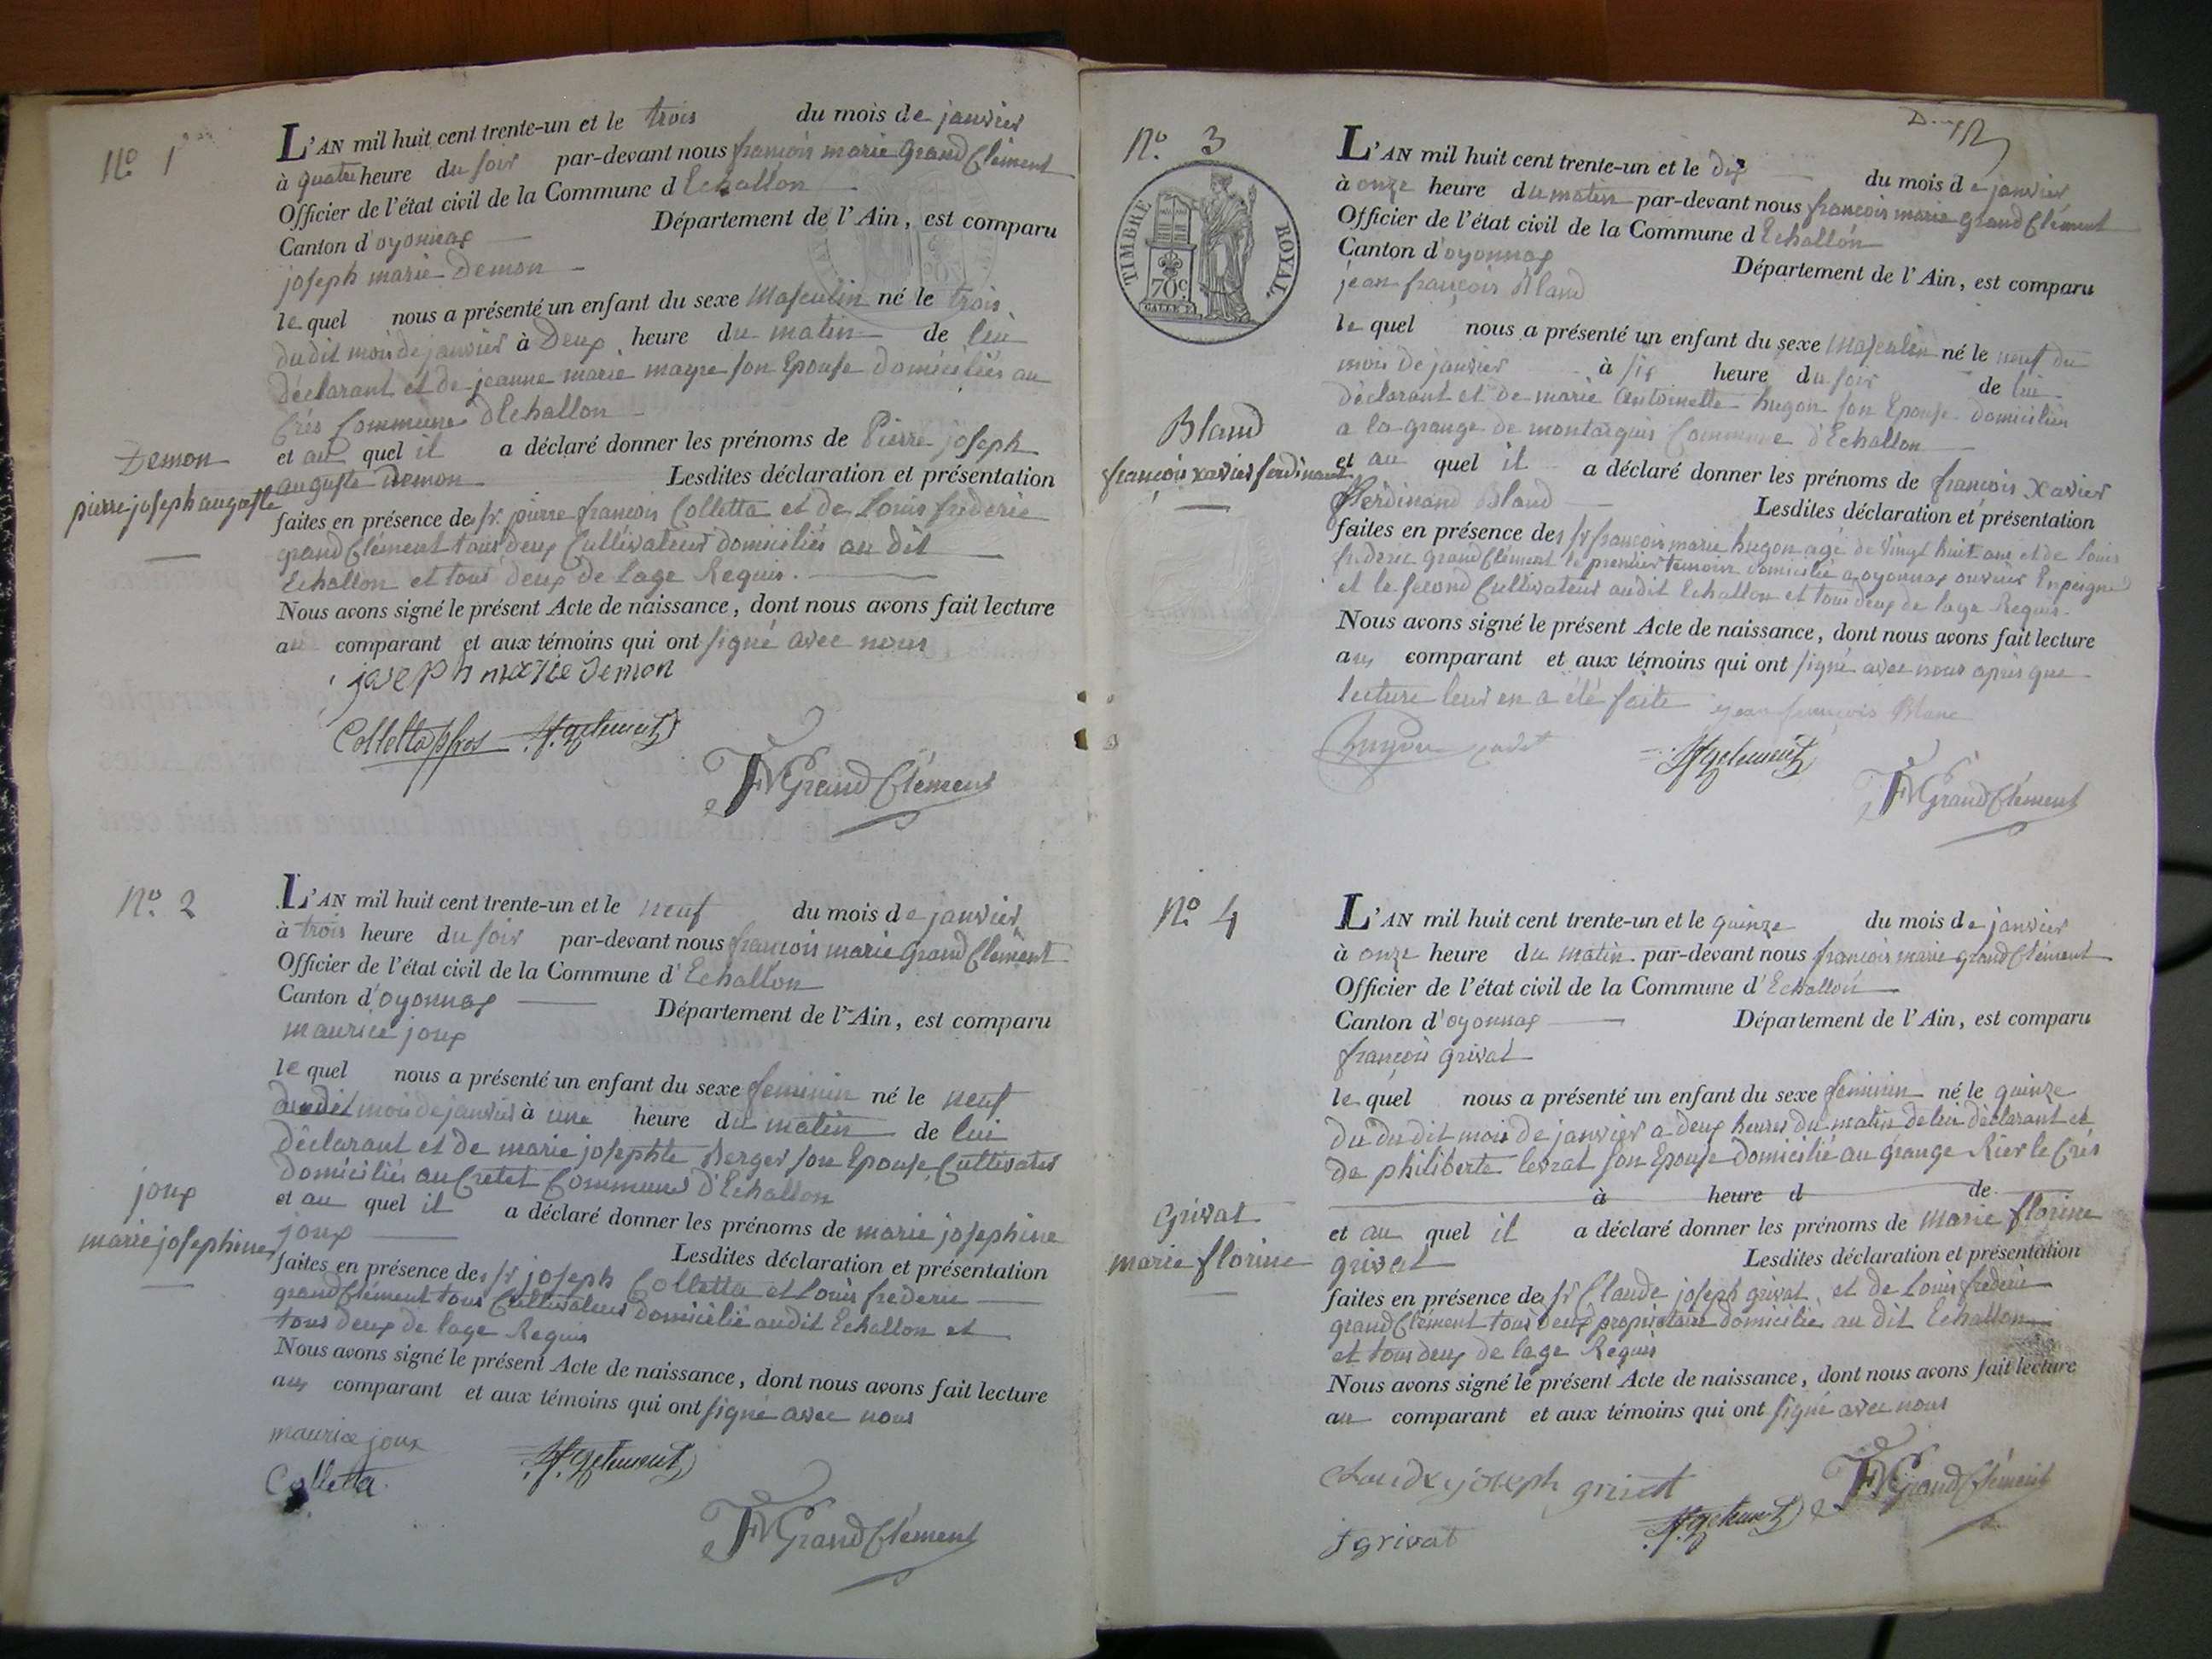 N.o 1
L'AN mil huit cent trente-un et le trois du mois de janvier
à quatre heure du soir par-devant nous françois marie GrandClément
Officier de l'état civil de la Commune d'Echallon
Canton d'oyonnax Département de l'Ain, est comparu
joseph marie Demon
lequel nous a présenté un enfant du sexe Masculin né le trois
dudit mois de janvier à Deux heure du matin de lui
déclarant et de jeanne marie mayre son Epouse domiciliés au
Crés Commune d'Echallon
Demon
pierre joseph auguste
et au quel il a déclaré donner les prénoms de Pierre joseph
auguste Demon Lesdites déclaration et présentation
faites en présence des sr. françois Colletta et de Louis frederic
grandClément tous deux Cultivateurs domiciliés au dit
Echallon et tous deux de l'age Requis.
Nous avons signé le présent Acte de naissance, dont nous avons fait lecture
au comparant et aux témoins qui ont signé avec nous
joseph marie Demon
Colletta
FMGrandClément
N.o 2
L'AN mil huit cent trente-un et le neuf du mois de janvier
à trois heure du soir par-devant nous françois marie GrandClément
Officier de l'état civil de la Commune d'Echallon
Canton d'oyonnax Département de l'Ain, est comparu
maurice joux
lequel nous a présenté un enfant du sexe feminin né le neuf
dudit mois de janvier à une heure du matin de lui
Déclarant et de marie josephte Berger son Epouse, Cultivates
domiciliés au Cretet Commune d'Echallon
joux
marie josephine
et au quel il a déclaré donner les prénoms de marie josephine
joux Lesdites déclaration et présentation
faites en présence des sr joseph Colletta et Louis frederic
grandClément tous Cultivateurs domicilié audit Echallon et
tous deux de lage Requis
Nous avons signé le présent Acte de naissance, dont nous avons fait lecture
aux comparant et aux témoins qui ont signé avec nous
maurice joux
Colletta
FMGrandClément
N.o 3
TIMBRE ROYAL.
70c.
L'AN mil huit cent trente-un et le dix du mois de janvier
à onze heure du matin par-devant nous françois marie grandClément
Officier de l'état civil de la Commune d'Echallon
Canton d'oyonnax Département de l'Ain, est comparu
jean françois Bland
lequel nous a présenté un enfant du sexe Masculin né le neuf du
mois de janvier à six heure du soir de lui
déclarant et de marie Antoinette hugon son Epouse domiciliés
a la grange de montarquis Commune d'Echallon
Bland
françois xavier ferdinand
et au quel il a déclaré donner les prénoms de françois Xavier
Ferdinand Bland Lesdites déclaration et présentation
faites en présence des sr françois marie hugon agé de vingt huit ans et de Louis
frederic GrandClément le premier temoin domicilié a oyonnax ouvrier En peigne
et le second Cultivateur audit Echallon et tous deux de lage Requis.
Nous avons signé le présent Acte de naissance, dont nous avons fait lecture
aux comparant et aux témoins qui ont signé avec nous apres que
lecture leur en a été faite jean françois Blanc
cadet
FMGrandClément
N.o 4
L'AN mil huit cent trente-un et le quinze du mois de janvier
à onze heure du matin par-devant nous françois marie grandClément
Officier de l'état civil de la Commune d'Echallon
Canton d'oyonnax Département de l'Ain, est comparu
françois grivat
lequel nous a présenté un enfant du sexe feminin né le quinze
du dudit mois de janvier a deux heures du matin de lui déclarant et
de philiberte levrat son Epouse Domicilié au grange Rier le Crés
à heure d de
Grivat
marie florine
et au quel il a déclaré donner les prénoms de marie florine
grivat Lesdites déclaration et présentation
faites en présence des sr Claude joseph grivat et de Louis frederic
grandClément tous deux propriétaire domiciliés au dit Echallon
et tous deux de lage Requis
Nous avons signé le présent Acte de naissance, dont nous avons fait lecture
au comparant et aux témoins qui ont signé avec nous
Claude joseph grivat
FMGrandClément
f grivat